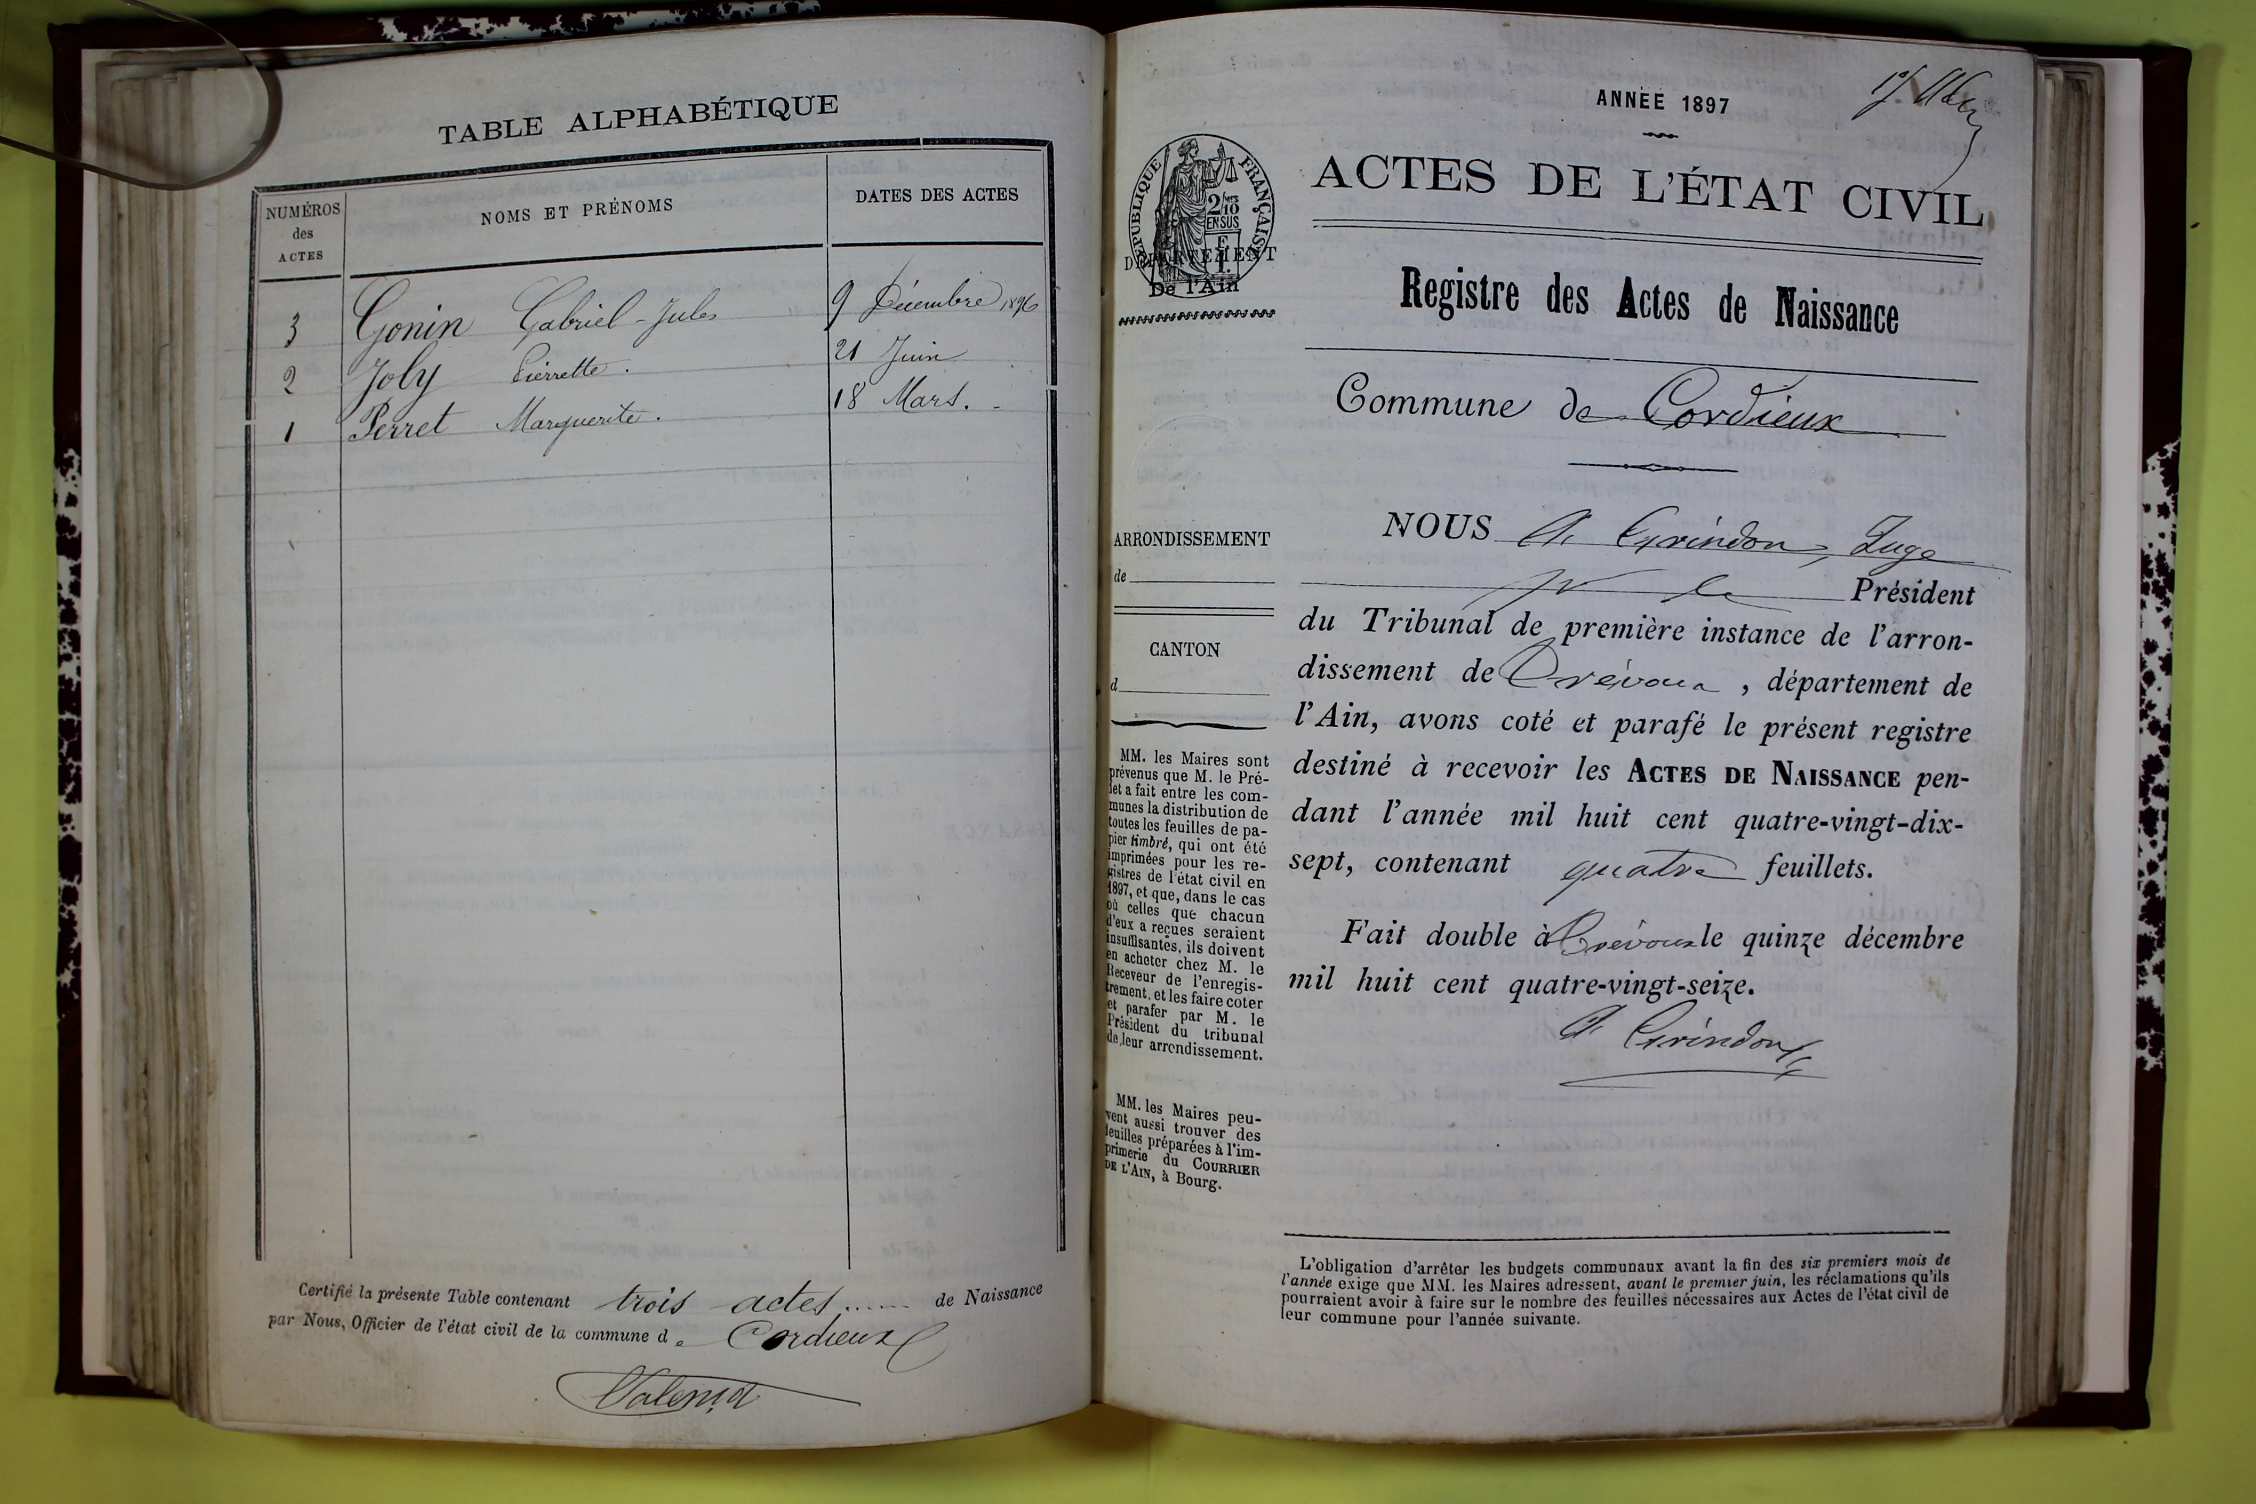 TABLE ALPHABÉTIQUE
NUMÉROS
des
ACTES
NOMS ET PRÉNOMS
DATES DES ACTES
3 Gonin Gabriel-Jules 9 Décembre 1896
2 Joly Pierrette. 21 Juin
1 Perret Marguerite. 18 Mars.
Certifié la présente Table contenant trois actes ...... de Naissance
par Nous, Officier de l'état civil de la commune de Cordieux
ANNÉE 1897
RÉPUBLIQUE FRANÇAISE
2/10
EN SUS
DÉPARTEMENT
De l'Ain
ACTES DE L'ÉTAT CIVIL
Registre des Actes de Naissance
Commune de Cordieux
ARRONDISSEMENT
de
CANTON
d
MM. les Maires sont
prévenus que M. le Pré-
fet a fait entre les com-
munes la distribution de
toutes les feuilles de pa-
pier timbré, qui ont été
imprimées pour les re-
gistres de l'état civil en
1897, et que, dans le cas
où celles que chacun
d'eux a reçues seraient
insuffisantes, ils doivent
en acheter chez M. le
Receveur de l'enregis-
trement, et les faire coter
et parafer par M. le
Président du tribunal
de leur arrondissement.
MM. les Maires peu-
vent aussi trouver des
feuilles préparées à l'im-
primerie du COURRIER
DE L'AIN, à Bourg.
NOUS A. Girindon, Juge
pr le Président
du Tribunal de première instance de l'arron-
dissement de Trévoux, département de
l'Ain, avons coté et parafé le présent registre
destiné à recevoir les ACTES DE NAISSANCE pen-
dant l'année mil huit cent quatre-vingt-dix-
sept, contenant quatre feuillets.
Fait double à Trévoux le quinze décembre
mil huit cent quatre-vingt-seize.
A. Girindon
L'obligation d'arrêter les budgets communaux avant la fin des six premiers mois de
l'année exige que MM. les Maires adressent, avant le premier juin, les réclamations qu'ils
pourraient avoir à faire sur le nombre des feuilles nécessaires aux Actes de l'état civil de
leur commune pour l'année suivante.